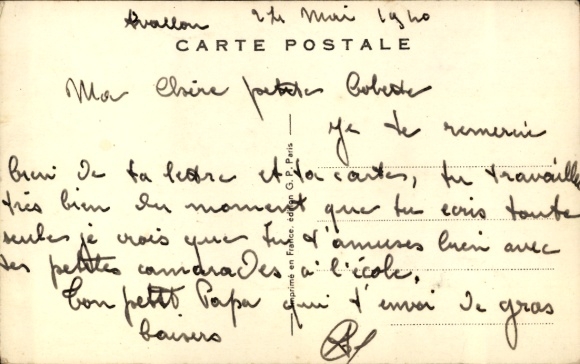 Avallon 24 Mai 1940
CARTE POSTALE
Ma Chère petite Bobette
Je te remercie
bien de ta lettre et ta cartes, tu travaille
très bien du moment que tu ecris toute
seule, je crois que tu t'amuses bien avec
tes petites camarades à l'école.
Ton petit Papa qui t'envoi de gros
baisers
Imprimé en France, édition G. P. Paris